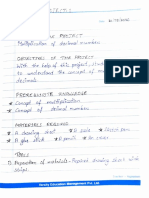 NAME OF THE PROJECT
Multiplication of decimal number
OBJECTIVES OF THE PROJECT
With the help of this project, students
to understand the concept of
decimals
PREREQUISITE KNOWLEDGE
* Concept of multiplication
* Concept of decimal number
MATERIALS REQUIRED
* A drawing sheet * A scale * Sketch pen
* A glue stick * A pencil * Scissor
TOOLS
① Preparation of materials- Prepared drawing sheet with
strips
Education Management Pvt. Ltd.